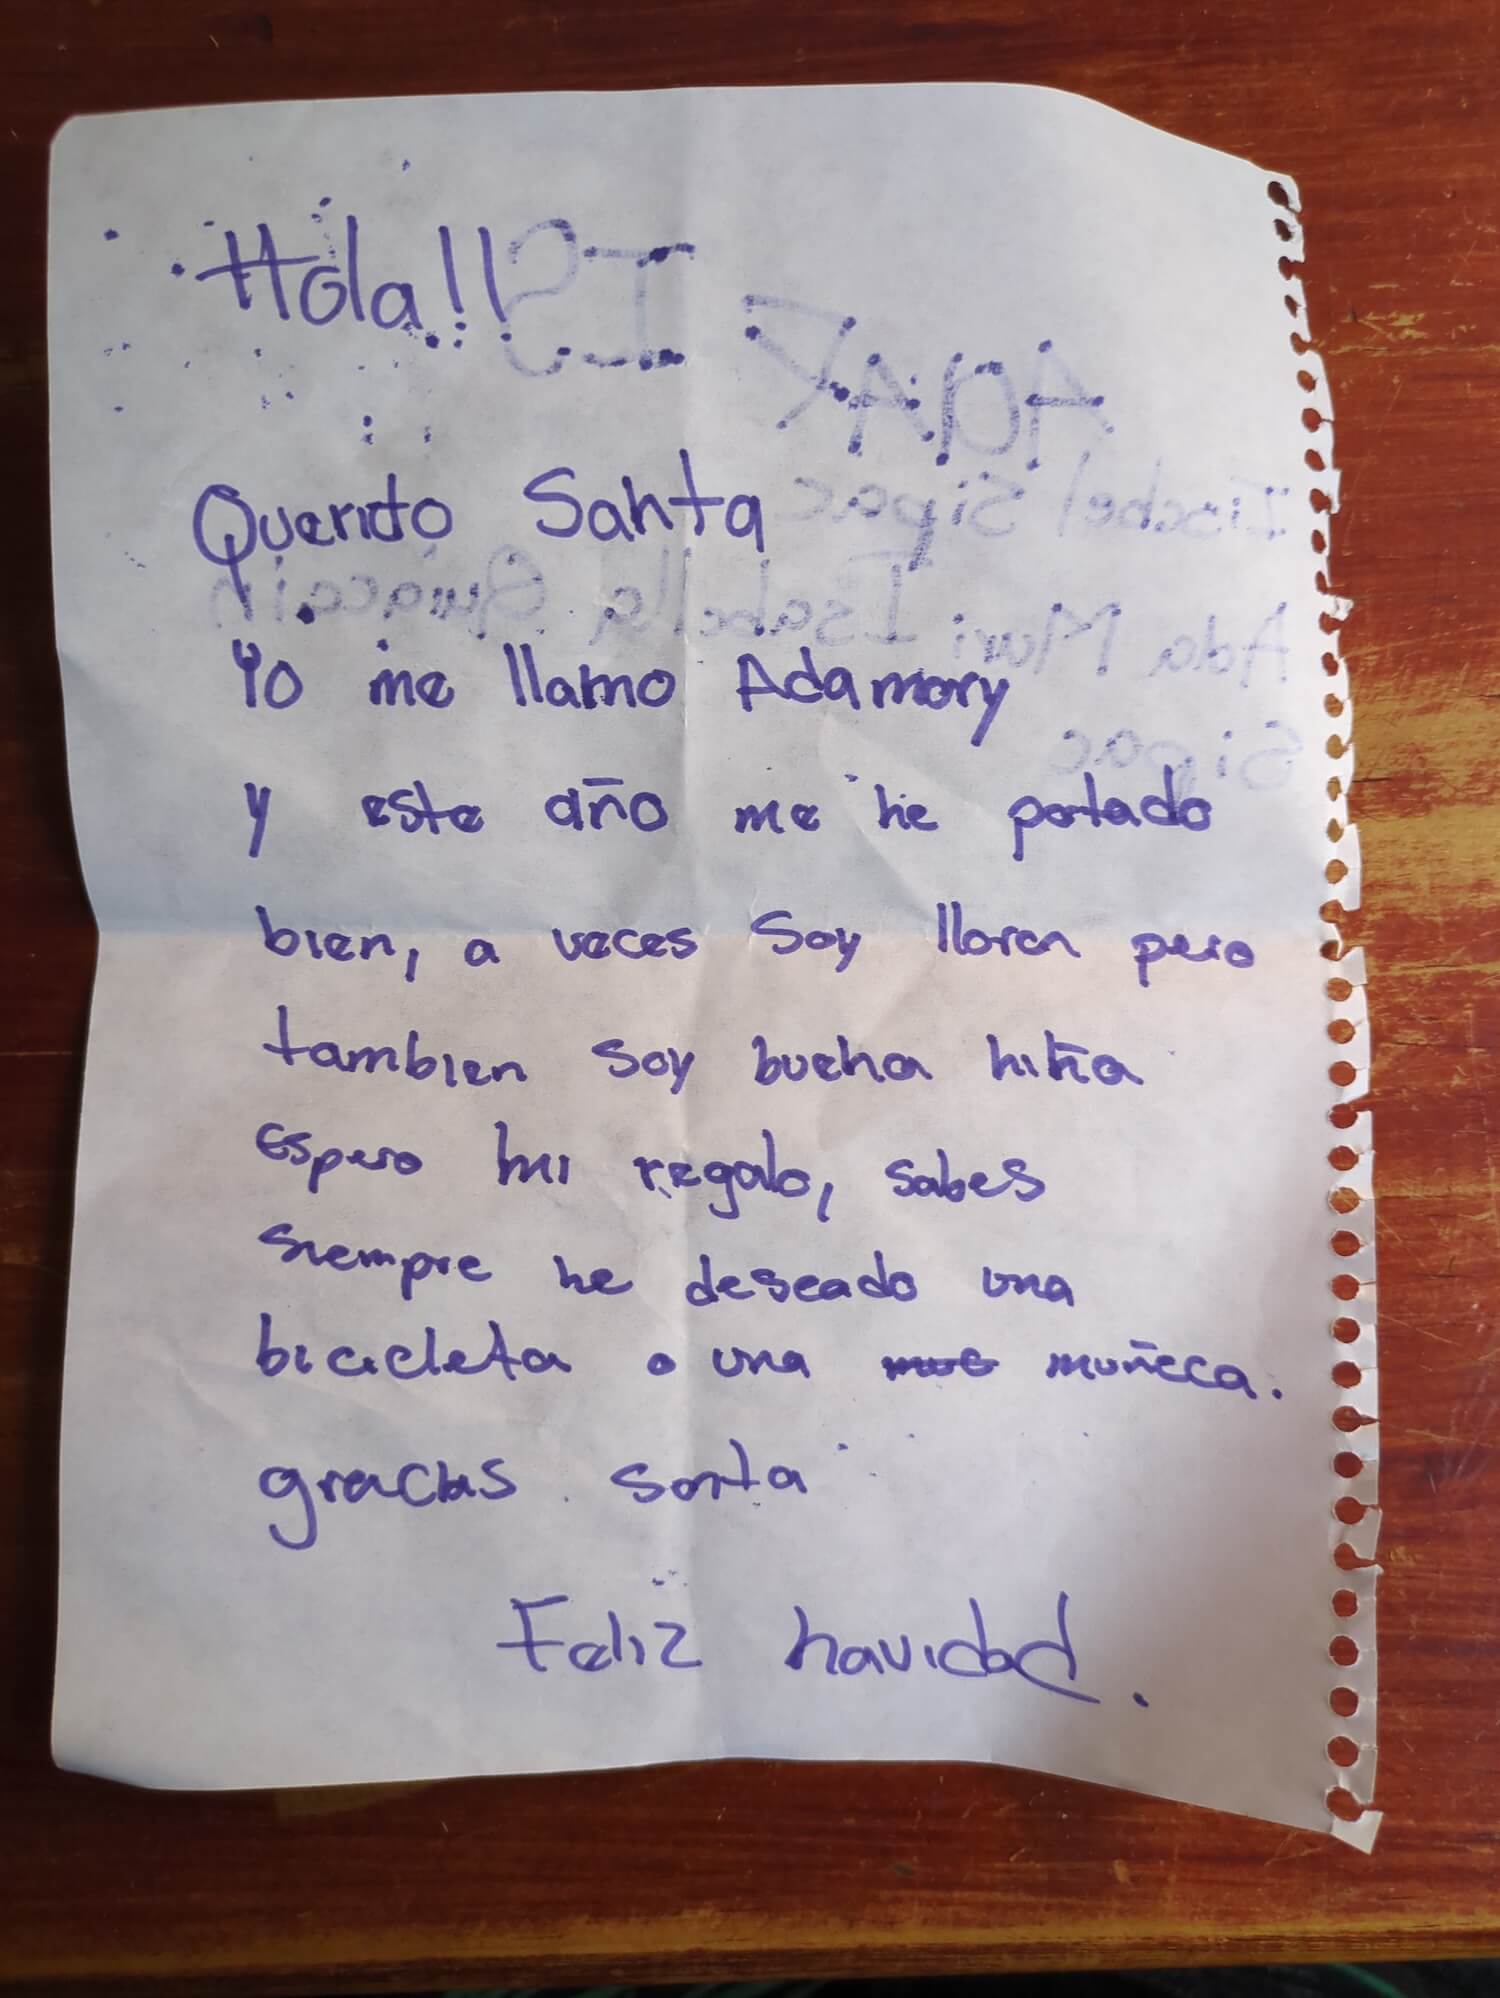 Hola!!
Querido Santa
Yo me llamo Adamary
y este año me he portado
bien, a veces soy lloron pero
tambien soy buena niña
Espero mi regalo, sabes
siempre he deseado una
bicicleta o una muñeca.
gracias santa
Feliz navidad.